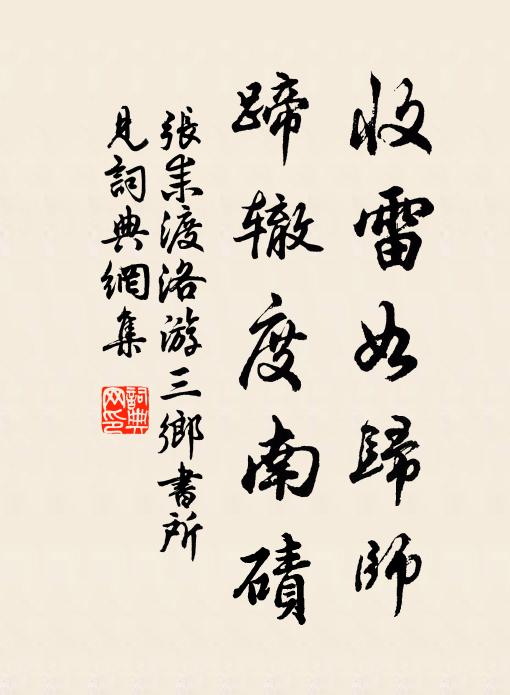 收雷如歸師
蹄辙度南磧
張耒渡洛游三鄉書所
見詞典網集
詞典
网印